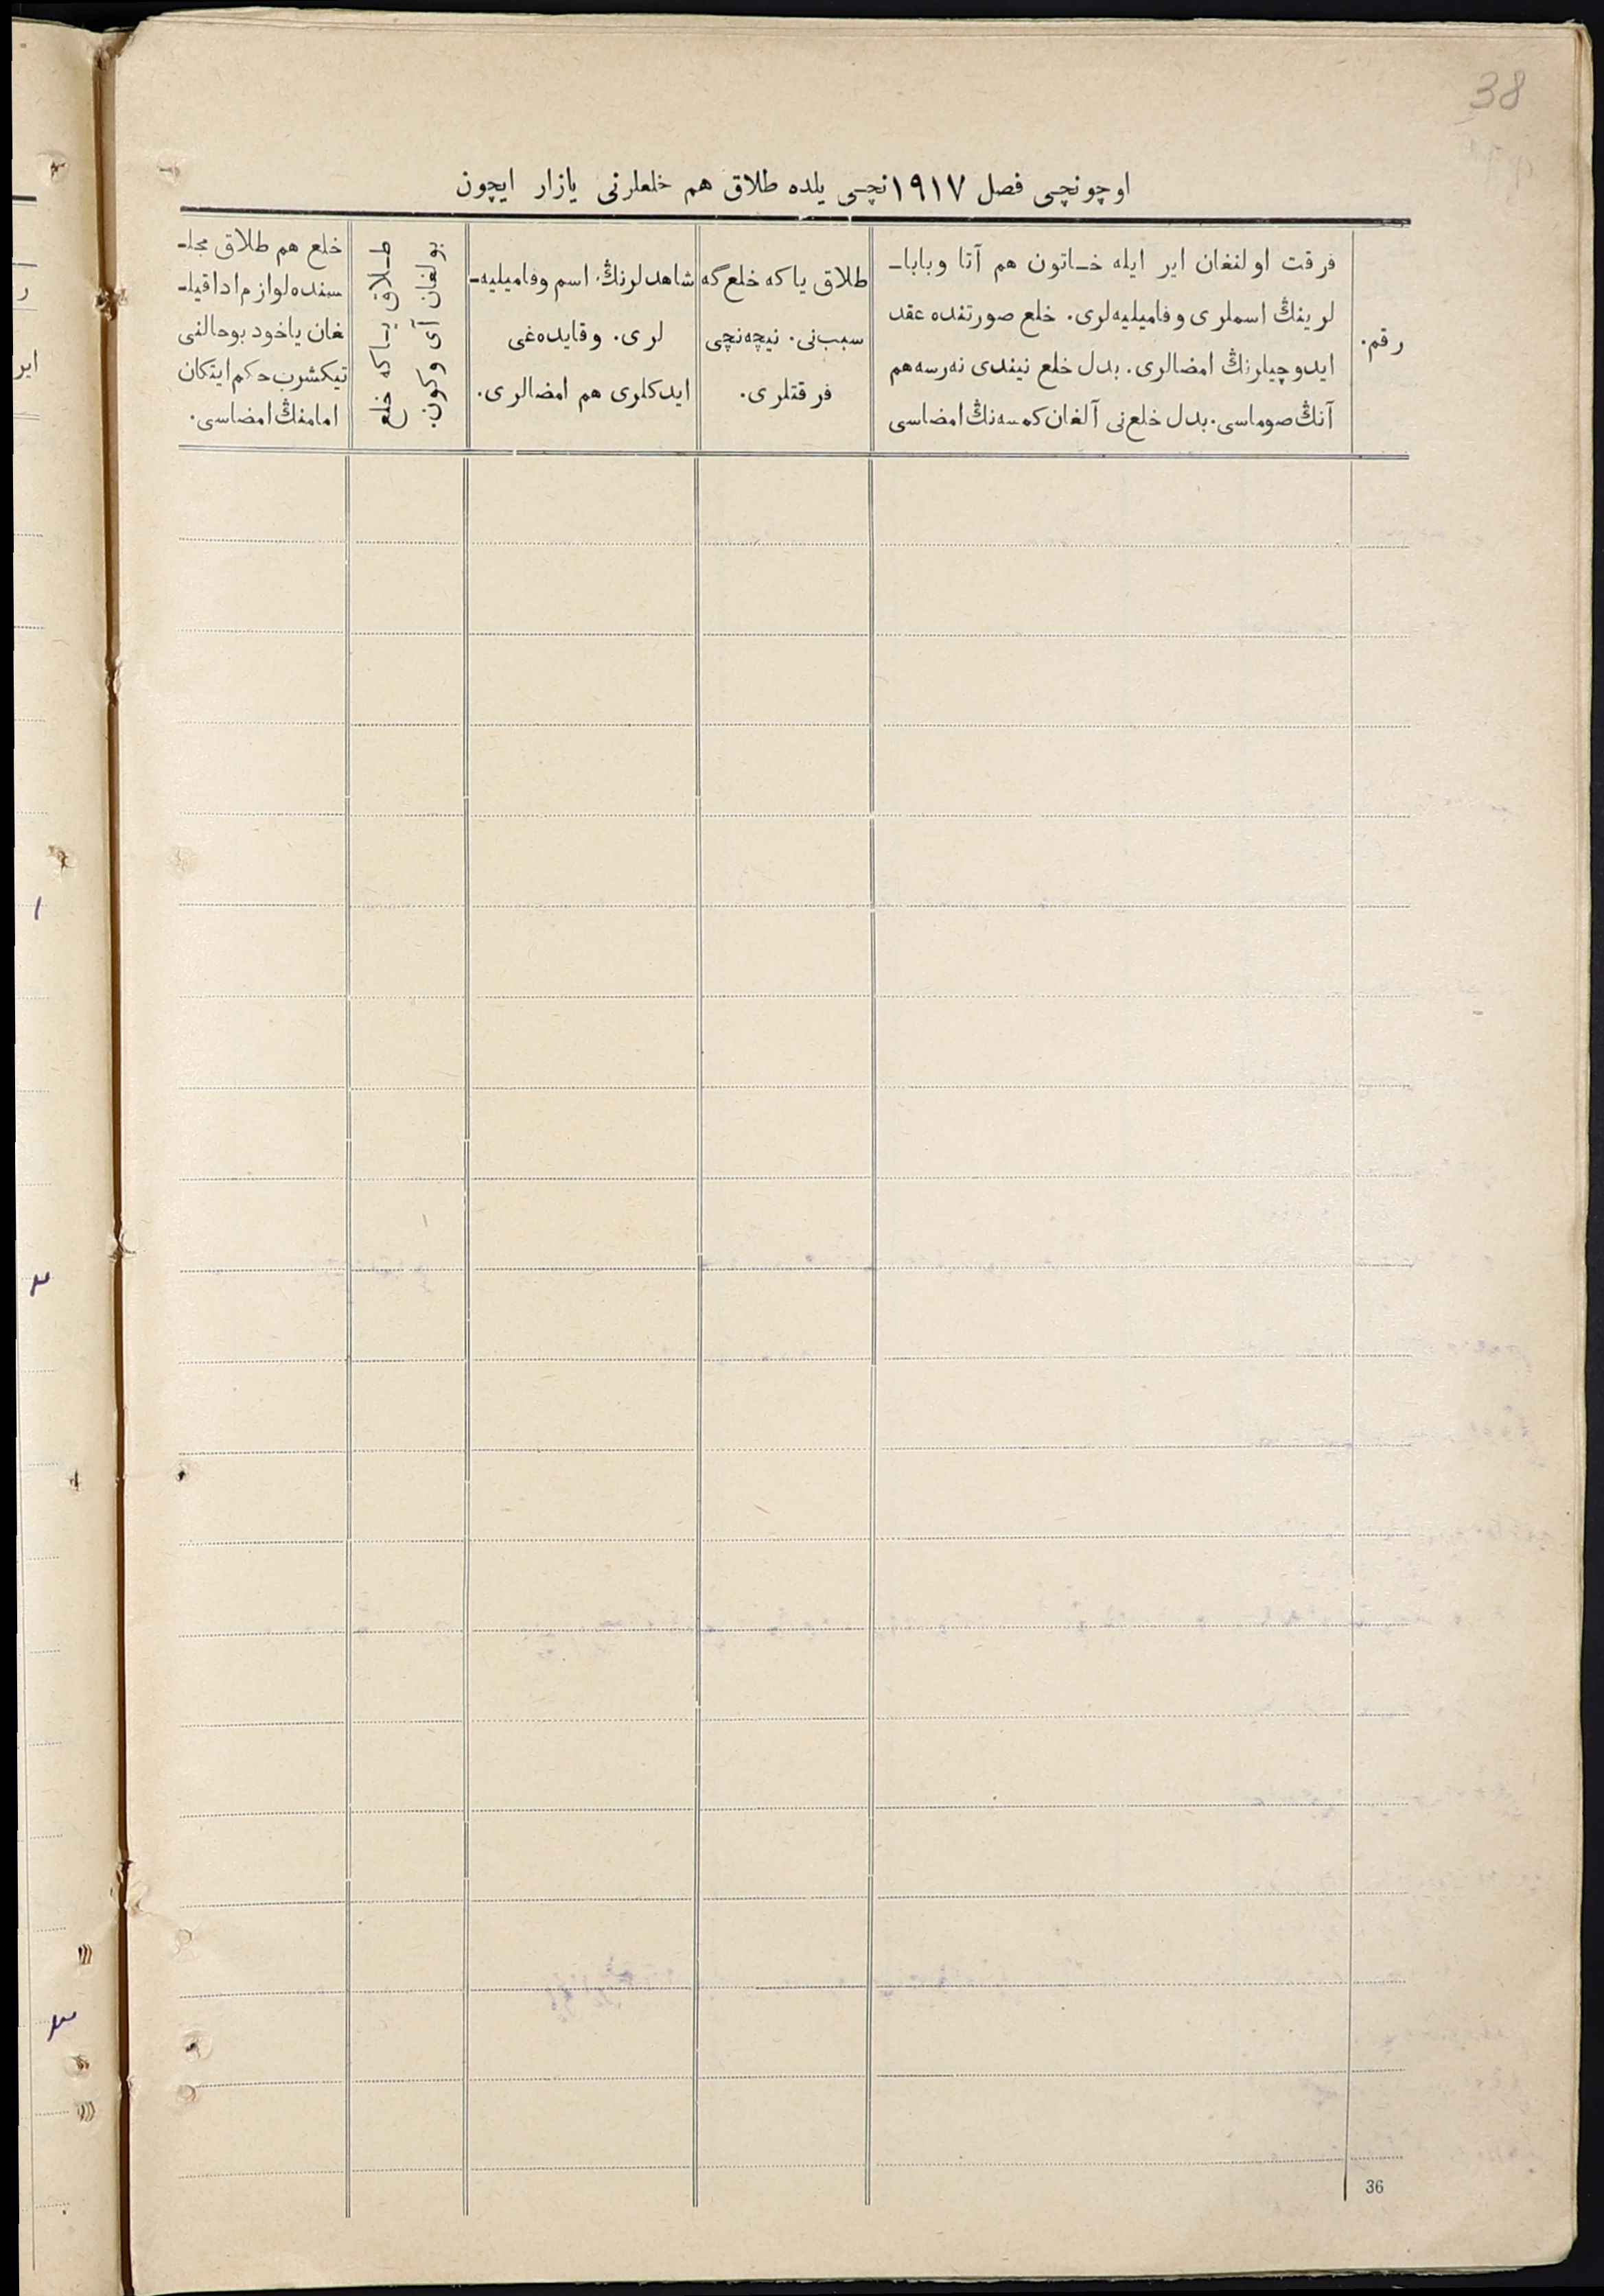 38
اوچونچی فصل ۱۹۱۷نچی یلده طلاق هم خلعلرنی یازار ایچون
رقم.
فرقت اولنغان ایر ایله خـاتون هم آتا وبابا-
لرینڭ اسملری وفامیلیه‌لری. خلع صورتنده عقد
ایدوچیلرنڭ امضالری. بدل خلع نیندی نه‌رسه هم
آنڭ صوماسی. بدل خلع‌نی آلغان کمسه‌نڭ امضاسی
طلاق یاکه خلع گه
سبب‌نی. نیچه‌نچی
فرقتلری.
شاهدلرنڭ اسم وفامیلیه-
لری. وقایده‌غی
ایدکلری هم امضالری.
طـلاق یـاکه خلع
بولغان آی وکون.
خلع هم طلاق مجلـ
سنده لوازم ادا قیلـ
غان یاخود بوحالنی
تیکشرب حکم ایتکان
امامنڭ امضاسی.
36